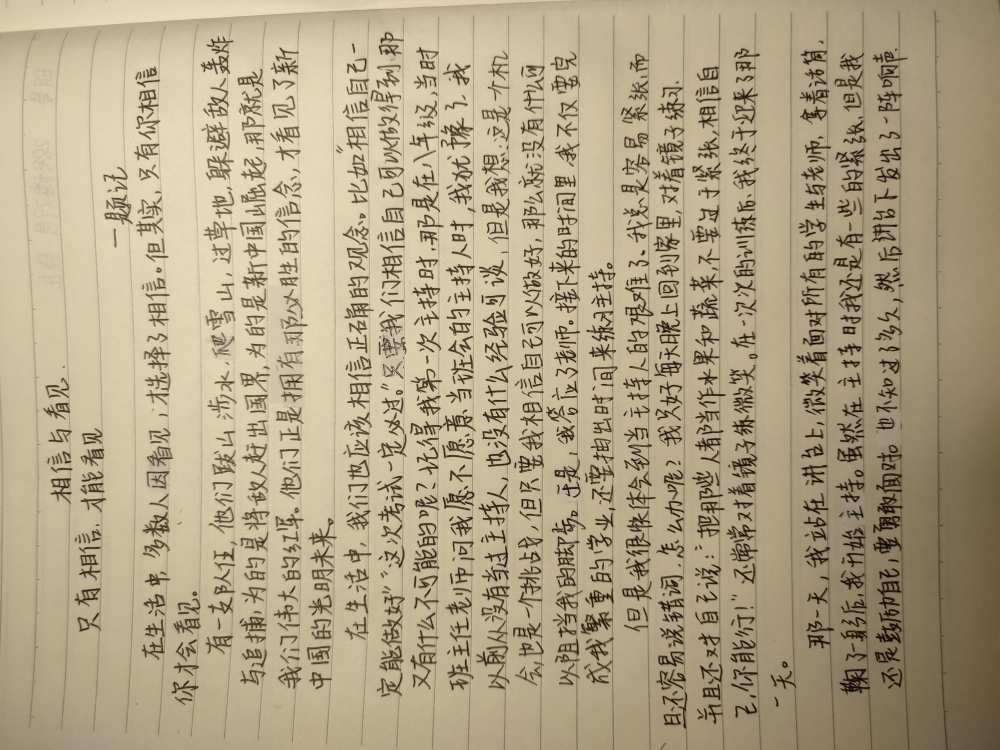 相信与看见.
只有相信,才能看见
—题记
在生活中,多数人因看见,才选择了相信。但其实,只有你相信
你才会看见。
有一支队伍,他们跋山涉水,爬雪山,过草地,躲避敌人轰炸
与追捕,为的是将敌人赶出国界,为的是新中国崛起,那就是
我们伟大的红军。他们正是拥有那必胜的信念,才看见了新
中国的光明未来。
在生活中,我们也应该相信正确的观念。比如“相信自己一
定能做好”“这次考试一定必过。”只要我们相信自己可以做得到,那
又有什么不可能的呢?记得我第一次主持时,那是在八年级,当时
班主任老师问我愿不愿意当班会的主持人时,我犹豫了,我
以前从没有当过主持人,也没有什么经验可谈,但是我想:这是个机
会,也是一个挑战,但只要我相信自己可以做好,那么就没有什么可
以阻挡我的脚步。于是,我答应了老师。接下来的时间里,我不仅要完
成我繁重的学业,还要抽出时间来练习主持。
但是我很快体会到当主持人的艰难了、我总是容易紧张,而
且还容易说错词,怎么办呢?我只好每天晚上回到家里,对着镜子练习.
并且还对自己说:“把那些人都当作水果和蔬菜,不要过于紧张,相信自
己,你能行!”还常常对着镜子练微笑。在一次次的训练后,我终于迎来了那
一天。
那一天,我站在讲台上,微笑着面对所有的学生与老师,拿着话筒,
鞠了一躬后,我开始主持。虽然在主持时我还是有一些的紧张,但是我
还是鼓励自己,要勇敢面对。也不知过了多久,然后讲台下发出了一阵响声